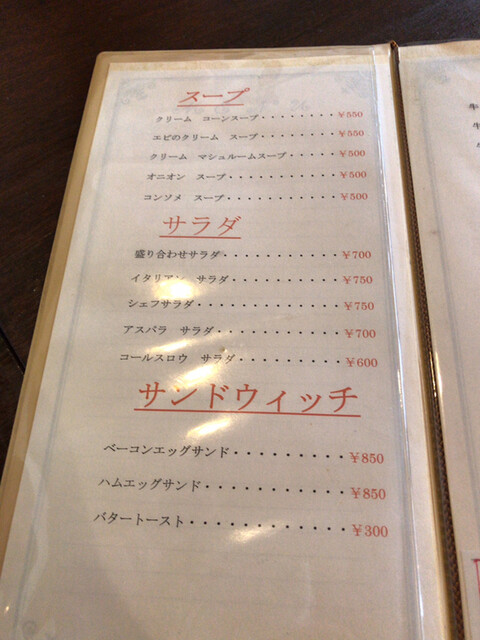 スープ
クリーム コーンスープ・・・・・・・・¥550
エビのクリーム スープ・・・・・・・・¥550
クリーム マシュルームスープ・・・・・¥500
オニオン スープ・・・・・・・・・・・¥500
コンソメ スープ・・・・・・・・・・・¥500
サラダ
盛り合わせサラダ・・・・・・・・・・・¥700
イタリアン サラダ・・・・・・・・・・¥750
シェフサラダ・・・・・・・・・・・・・¥750
アスパラ サラダ・・・・・・・・・・・¥700
コールスロウ サラダ・・・・・・・・・¥600
サンドウィッチ
ベーコンエッグサンド・・・・・・・・・¥850
ハムエッグサンド・・・・・・・・・・・¥850
バタートースト・・・・・・・・・・・・¥300
牛
牛